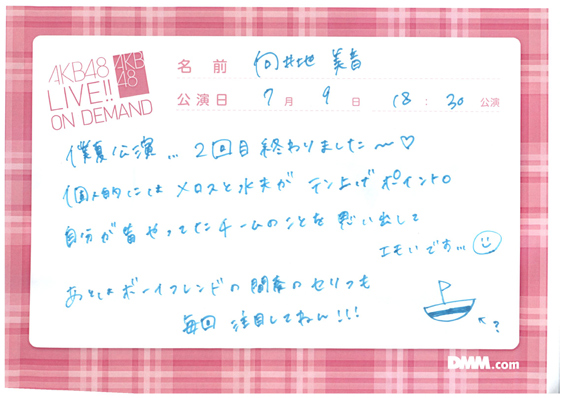 AKB48
LIVE!!
ON DEMAND
AKB
48
名前 向井地 美音
公演日 7月 9日 18:30 公演
僕夏公演... 2回目終わりました〜♡
個人的には メロスと水夫が テン上げポイント。
自分が昔やってたチームのことを 思い出して
エモいです...
あとは ボーイフレンドの 間奏の セリフも
毎回 注目してねん!!!
?
DMM.com